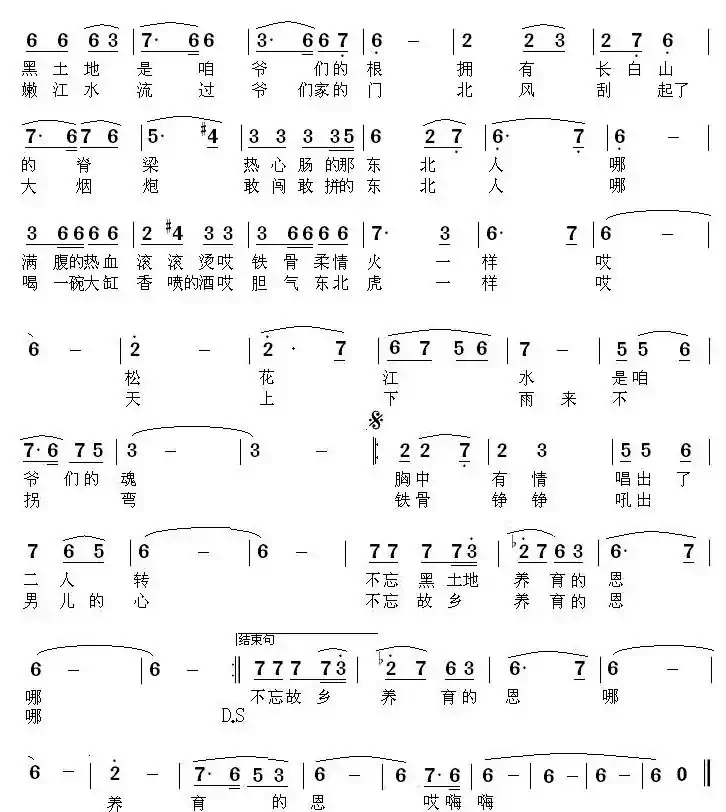 6 6 6 3 | 7· 6 6 | 3· 6 6 7 | 6 – | 2 2 3 | 2 7 6 |
黑 土 地 是 咱 爷 们 的 根 拥 有 长 白 山
嫩 江 水 流 过 爷 们 家 的 门 北 风 刮 起 了
7· 6 7 6 | 5· #4 | 3 3 3 3 5 | 6 2 7 | 6· 7 | 6 – |
的 脊 梁 热 心 肠 的 那 东 北 人 哪
大 烟 炮 敢 闯 敢 拼 的 东 北 人 哪
3 6 6 6 6 | 2 #4 3 3 | 3 6 6 6 6 | 7· 3 | 6· 7 | 6 – |
满 腹 的 热 血 滚 滚 烫 哎 铁 骨 柔 情 火 一 样 哎
喝 一 碗 大 缸 香 喷 的 酒 哎 胆 气 东 北 虎 一 样 哎
6 – | 2 – | 2· 7 | 6 7 5 6 | 7 – | 5 5 6 |
松 花 江 水 是 咱
天 上 下 雨 来 不
7· 6 7 5 | 3 – | 3 – |: 2 2 7 | 2 3 | 5 5 6 |
爷 们 的 魂 胸 中 有 情 唱 出 了
拐 弯 铁 骨 铮 铮 吼 出
7 6 5 | 6 – | 6 – | 7 7 7 7 3 | ♭2 7 6 3 | 6· 7 |
二 人 转 不 忘 黑 土 地 养 育 的 恩
男 儿 的 心 不 忘 故 乡 养 育 的 恩
结束句
6 – | 6 – :| 7 7 7 7 3 | ♭2 7 6 3 | 6· 7 | 6 – |
哪 不 忘 故 乡 养 育 的 恩 哪
哪 D.S
6 – | 2 – | 7· 6 5 3 | 6 – | 6 7· 6 | 6 – | 6 – | 6 0 ‖
养 育 的 恩 哎 嗨 嗨